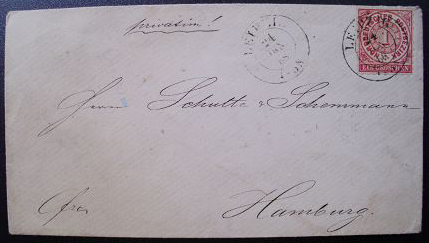 privatim!
LEIPZIG
24
LEIPZIG
1
Herrn Schulte & Schemmann
Hamburg.